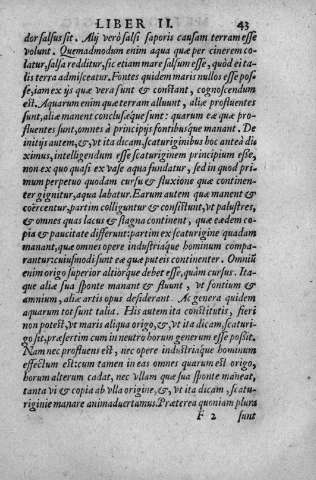 LIBER II. 43
dor salsus sit. Alij verò salsi saporis causam terram esse
volunt. Quemadmodum enim aqua quæ per cinerem co-
latur, salsa redditur, sic etiam mare salsum esse, quòd ei ta-
lis terra admisceatur. Fontes quidem maris nullos esse pos-
se, iam ex ijs quæ vera sunt & constant, cognoscendum
est. Aquarum enim quæ terram alluunt, aliæ profluentes
sunt, aliæ manent conclusæque sunt: quarum eæ quæ pro-
fluentes sunt, omnes à principijs fontibusque manant. De
initijs autem, &, vt ita dicam, scaturiginibus hoc anteà di-
ximus, intelligendum esse scaturiginem principium esse,
non ex quo quasi ex vase aqua fundatur, sed in quod pri-
mum perpetuo quodam cursu & fluxione quæ continen-
ter gignitur, aqua labatur. Earum autem quæ manent &
coërcentur, partim colliguntur & consistunt, vt palustres,
& omnes quas lacus & stagna continent, quæ eædem co-
pia & paucitate differunt: partim ex scaturigine quadam
manant, quæ omnes opere industriaque hominum compa-
rantur: cuiusmodi sunt eæ quæ puteis continenter. Omniũ
enim origo superior altiórque debet esse, quàm cursus. Ita-
que aliæ sua sponte manant & fluunt, vt fontium &
amnium, aliæ artis opus desiderant. Ac genera quidem
aquarum tot sunt talia. His autem ita constitutis, fieri
non potest, vt maris aliqua origo, &, vt ita dicam, scaturi-
go sit, præsertim cum in neutro horum generum esse possit.
Nam nec profluens est, nec opere industriaque hominum
effectum est: cum tamen in eas omnes quarum est origo,
horum alterum cadat, nec vllam quæ sua sponte maneat,
tanta vi & copia ab vlla origine, &, vt ita dicam, scatu-
rigine manare animaduertamus. Præterea quoniam plura
F 2 sunt